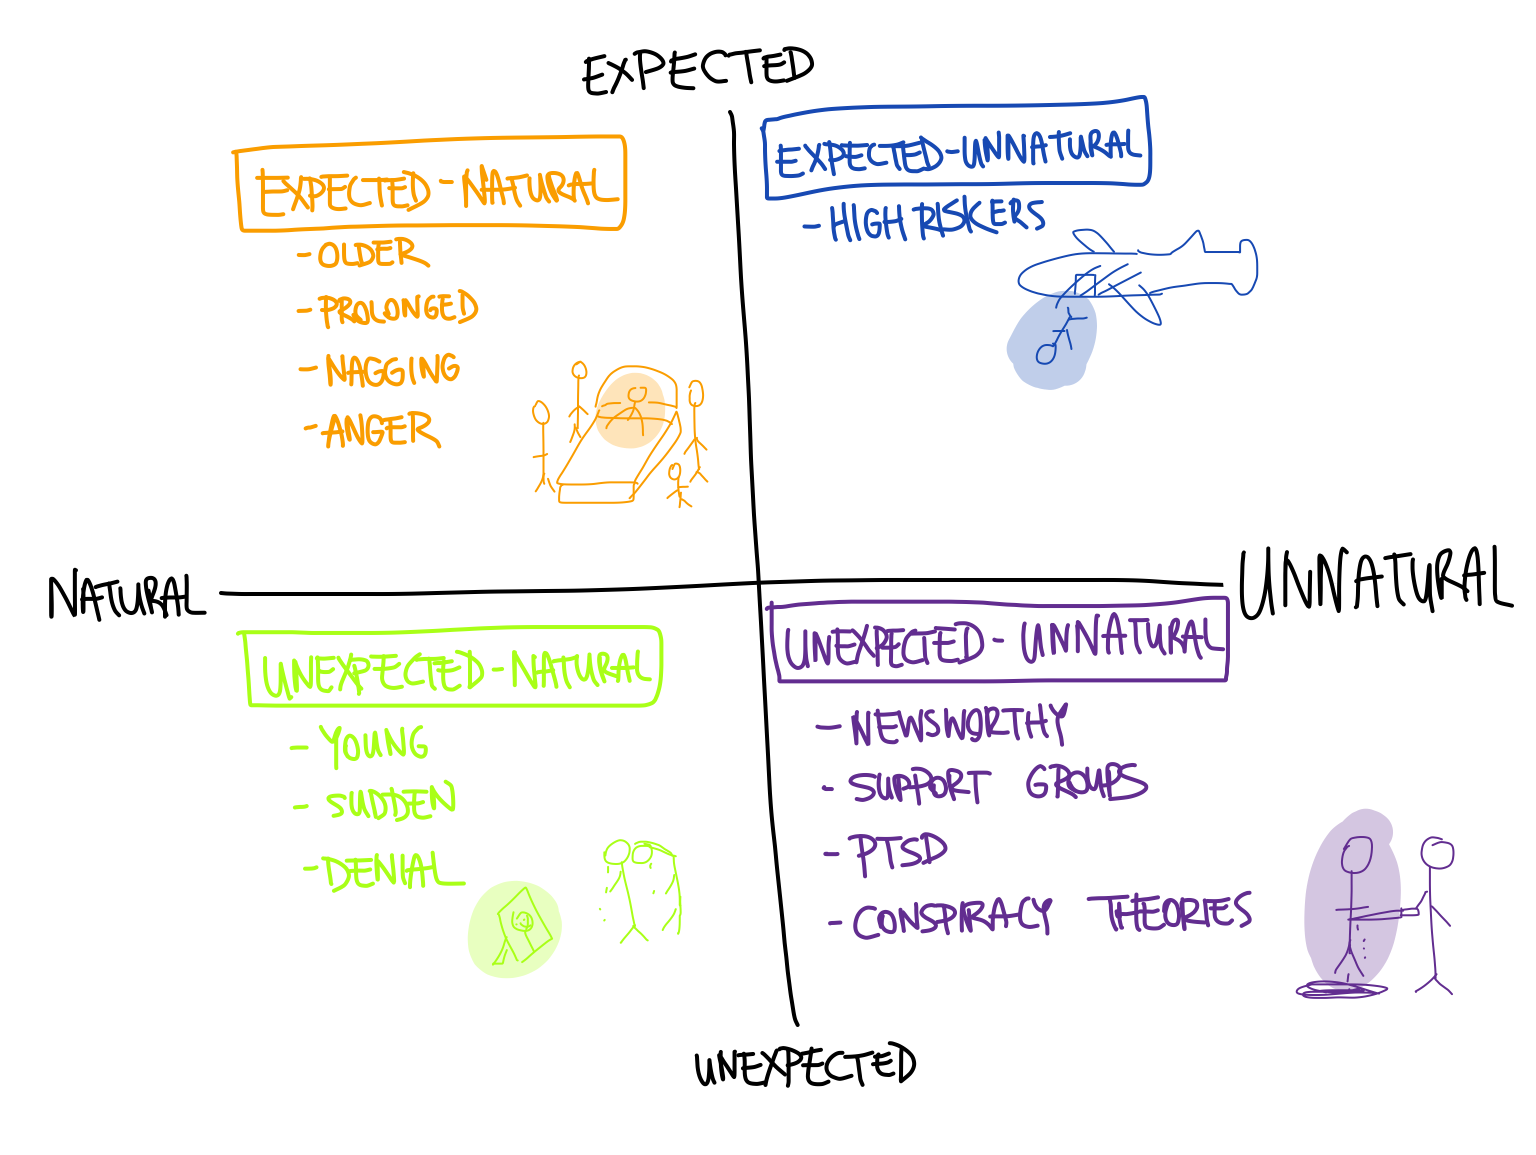 EXPECTED
EXPECTED-NATURAL
- OLDER
- PROLONGED
- NAGGING
- ANGER
EXPECTED-UNNATURAL
- HIGH RISKERS
NATURAL
UNNATURAL
UNEXPECTED-NATURAL
- YOUNG
- SUDDEN
- DENIAL
UNEXPECTED- UNNATURAL
- NEWSWORTHY
- SUPPORT GROUPS
- PTSD
- CONSPIRACY THEORIES
UNEXPECTED